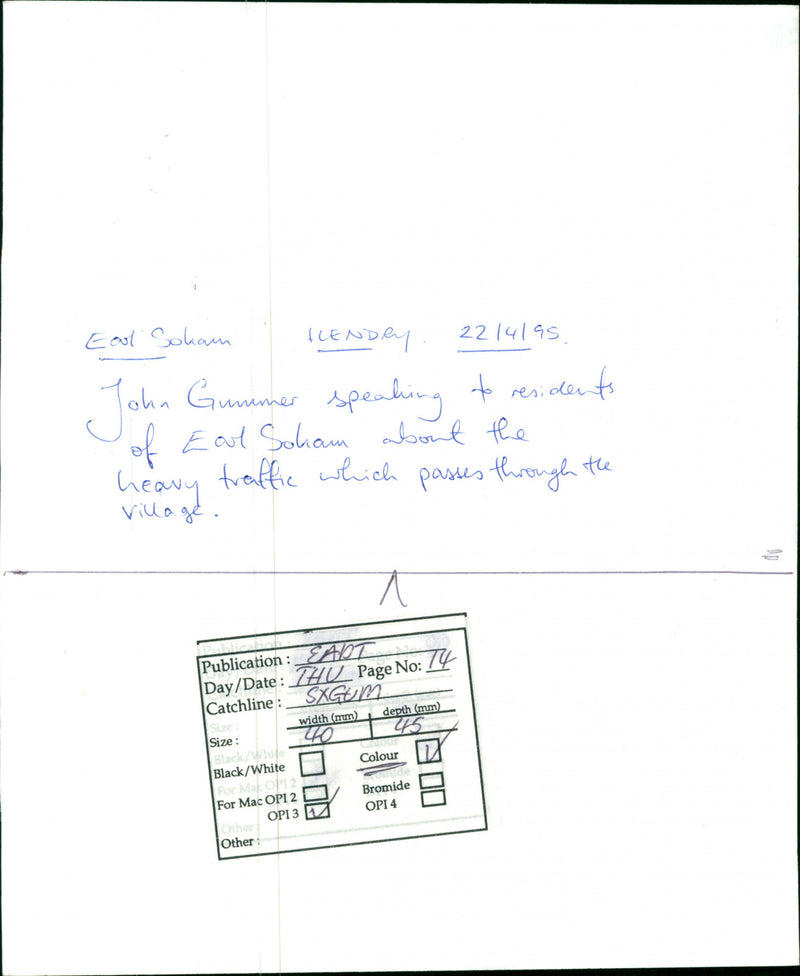 Earl Soham HENDRY. 22/4/95.
John Gummer speaking to residents
of Earl Soham about the
heavy traffic which passes through the
village.
Publication: EADT
Day/Date: THU Page No: T4
Catchline: SXGUM
width (mm) depth (mm)
Size: 40 45
Black/White Colour
For Mac OPI 2 Bromide
OPI 3 OPI 4
Other: